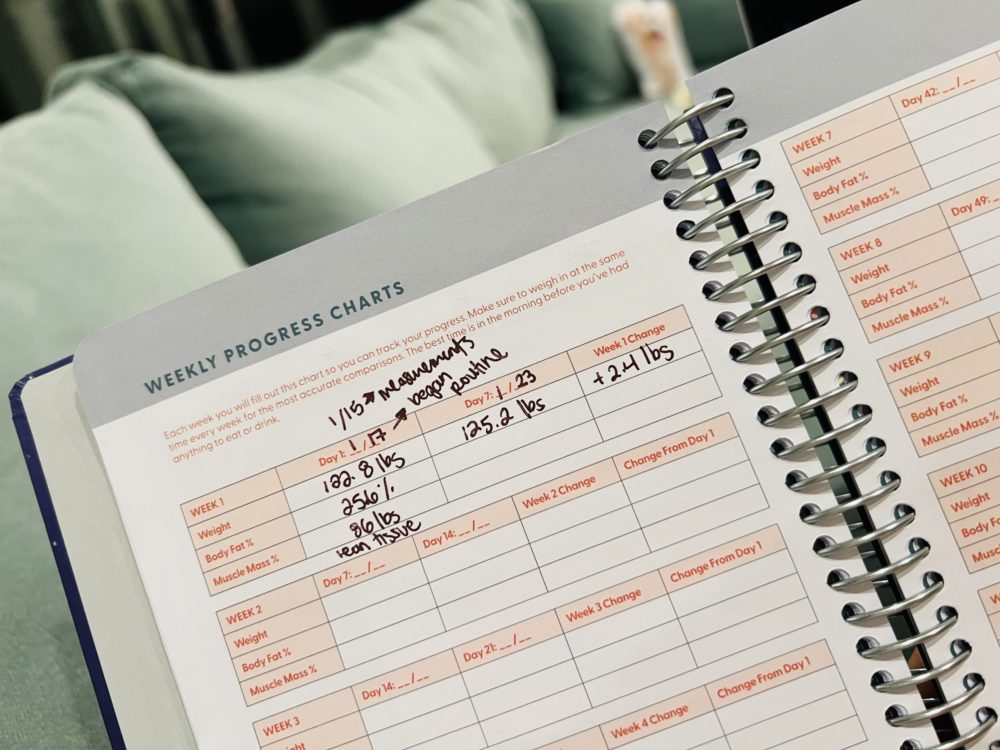 WEEKLY PROGRESS CHARTS
Each week you will fill out this chart so you can track your progress. Make sure to weigh in at the same
time every week for the most accurate comparisons. The best time is in the morning before you've had
anything to eat or drink.
1/15 → measurements
→ began routine
WEEK 1 Day 1: 1/17 Day 7: 1/23 Week 1 Change
Weight 122.8 lbs 125.2 lbs +2.4 lbs
Body Fat % 256%
Muscle Mass % 86 lbs
lean tissue
WEEK 2 Day 7: __/__ Day 14: __/__ Week 2 Change Change From Day 1
Weight
Body Fat %
Muscle Mass %
WEEK 3 Day 14: __/__ Day 21: __/__ Week 3 Change Change From Day 1
Weight
Week 4 Change Change From Day 1
WEEK 7 Day 42: __/__
Weight
Body Fat %
Muscle Mass %
WEEK 8 Day 49:
Weight
Body Fat %
Muscle Mass %
WEEK 9
Weight
Body Fat %
Muscle Mass %
WEEK 10
Weight
Body Fat %
Muscle Mass %